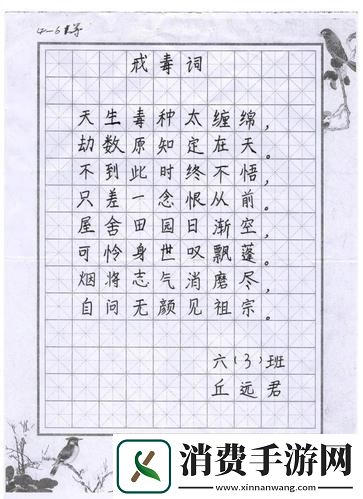 4-6 1等
戒毒词
天生毒种太缠绵，
劫数原知定在天。
不到此时终不悟，
只差一念恨从前。
屋舍田园日渐空，
可怜身世叹飘蓬。
烟将志气消磨尽，
自问无颜见祖宗。
六（3）班
丘远君
消费手游网
www.xinnanwang.com